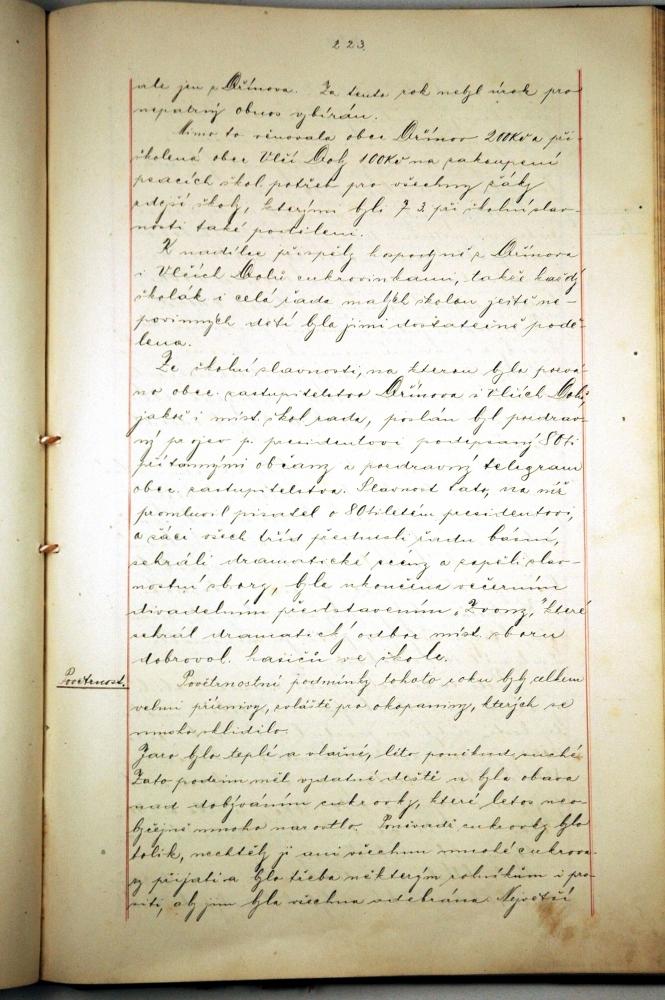 223.
ale jen z Dřínova. Za tento rok nebyl úrok pro
nepatrný obnos vybírán.
Mimo to věnovala obec Dřínov 200Kč a při-
školená obec Vlčí Doly 100Kč na zakoupení
psacích škol. potřeb pro všechny žáky
zdejší školy, kterými byli 7 3. při školní slav-
nosti také poděleni.
K nadílce přispěly hospodyně z Dřínova
i Vlčích Dolů cukrovinkami, takže každý
školák i celá řada malých školou ještě ne-
povinných dětí byla jimi dostatečně podě-
lena.
Ze školní slavnosti, na kterou bylo pozvá-
no obec. zastupitelstvo Dřínova i Vlčích Dolů,
jakož i míst. škol. rada, poslán byl pozdrav-
ný projev p. presidentovi podepsaný 80ti
přítomnými občany a pozdravný telegram
obec. zastupitelstva. Slavnost tato, na níž
promluvil pisatel o 80tiletém presidentovi,
a žáci všech tříd přednesli řadu básní,
sehráli dramatické scény a zapěli slav-
nostní sbory, byla ukončena večerním
divadelním představením „Zvony,“ které
sehrál dramatický odbor míst. sboru
dobrovol. hasičů ve škole.
Povětrnost.
Povětrnostní podmínky tohoto roku byly celkem
velmi příznivy, zvláště pro okopaniny, kterých se
mnoho sklidilo.
Jaro bylo teplé a vlažné, léto poněkud suché.
Zato podzim měl vydatné deště a byla obava
nad dobýváním cukrovky, které letos neo-
byčejně mnoho narostlo. Poněvadž cukrovky bylo
tolik, nechtěly ji ani všechnu mnohé cukrova-
ry přijati a bylo třeba některým rolníkům i pro-
siti, aby jim byla všechna odebrána. Největší